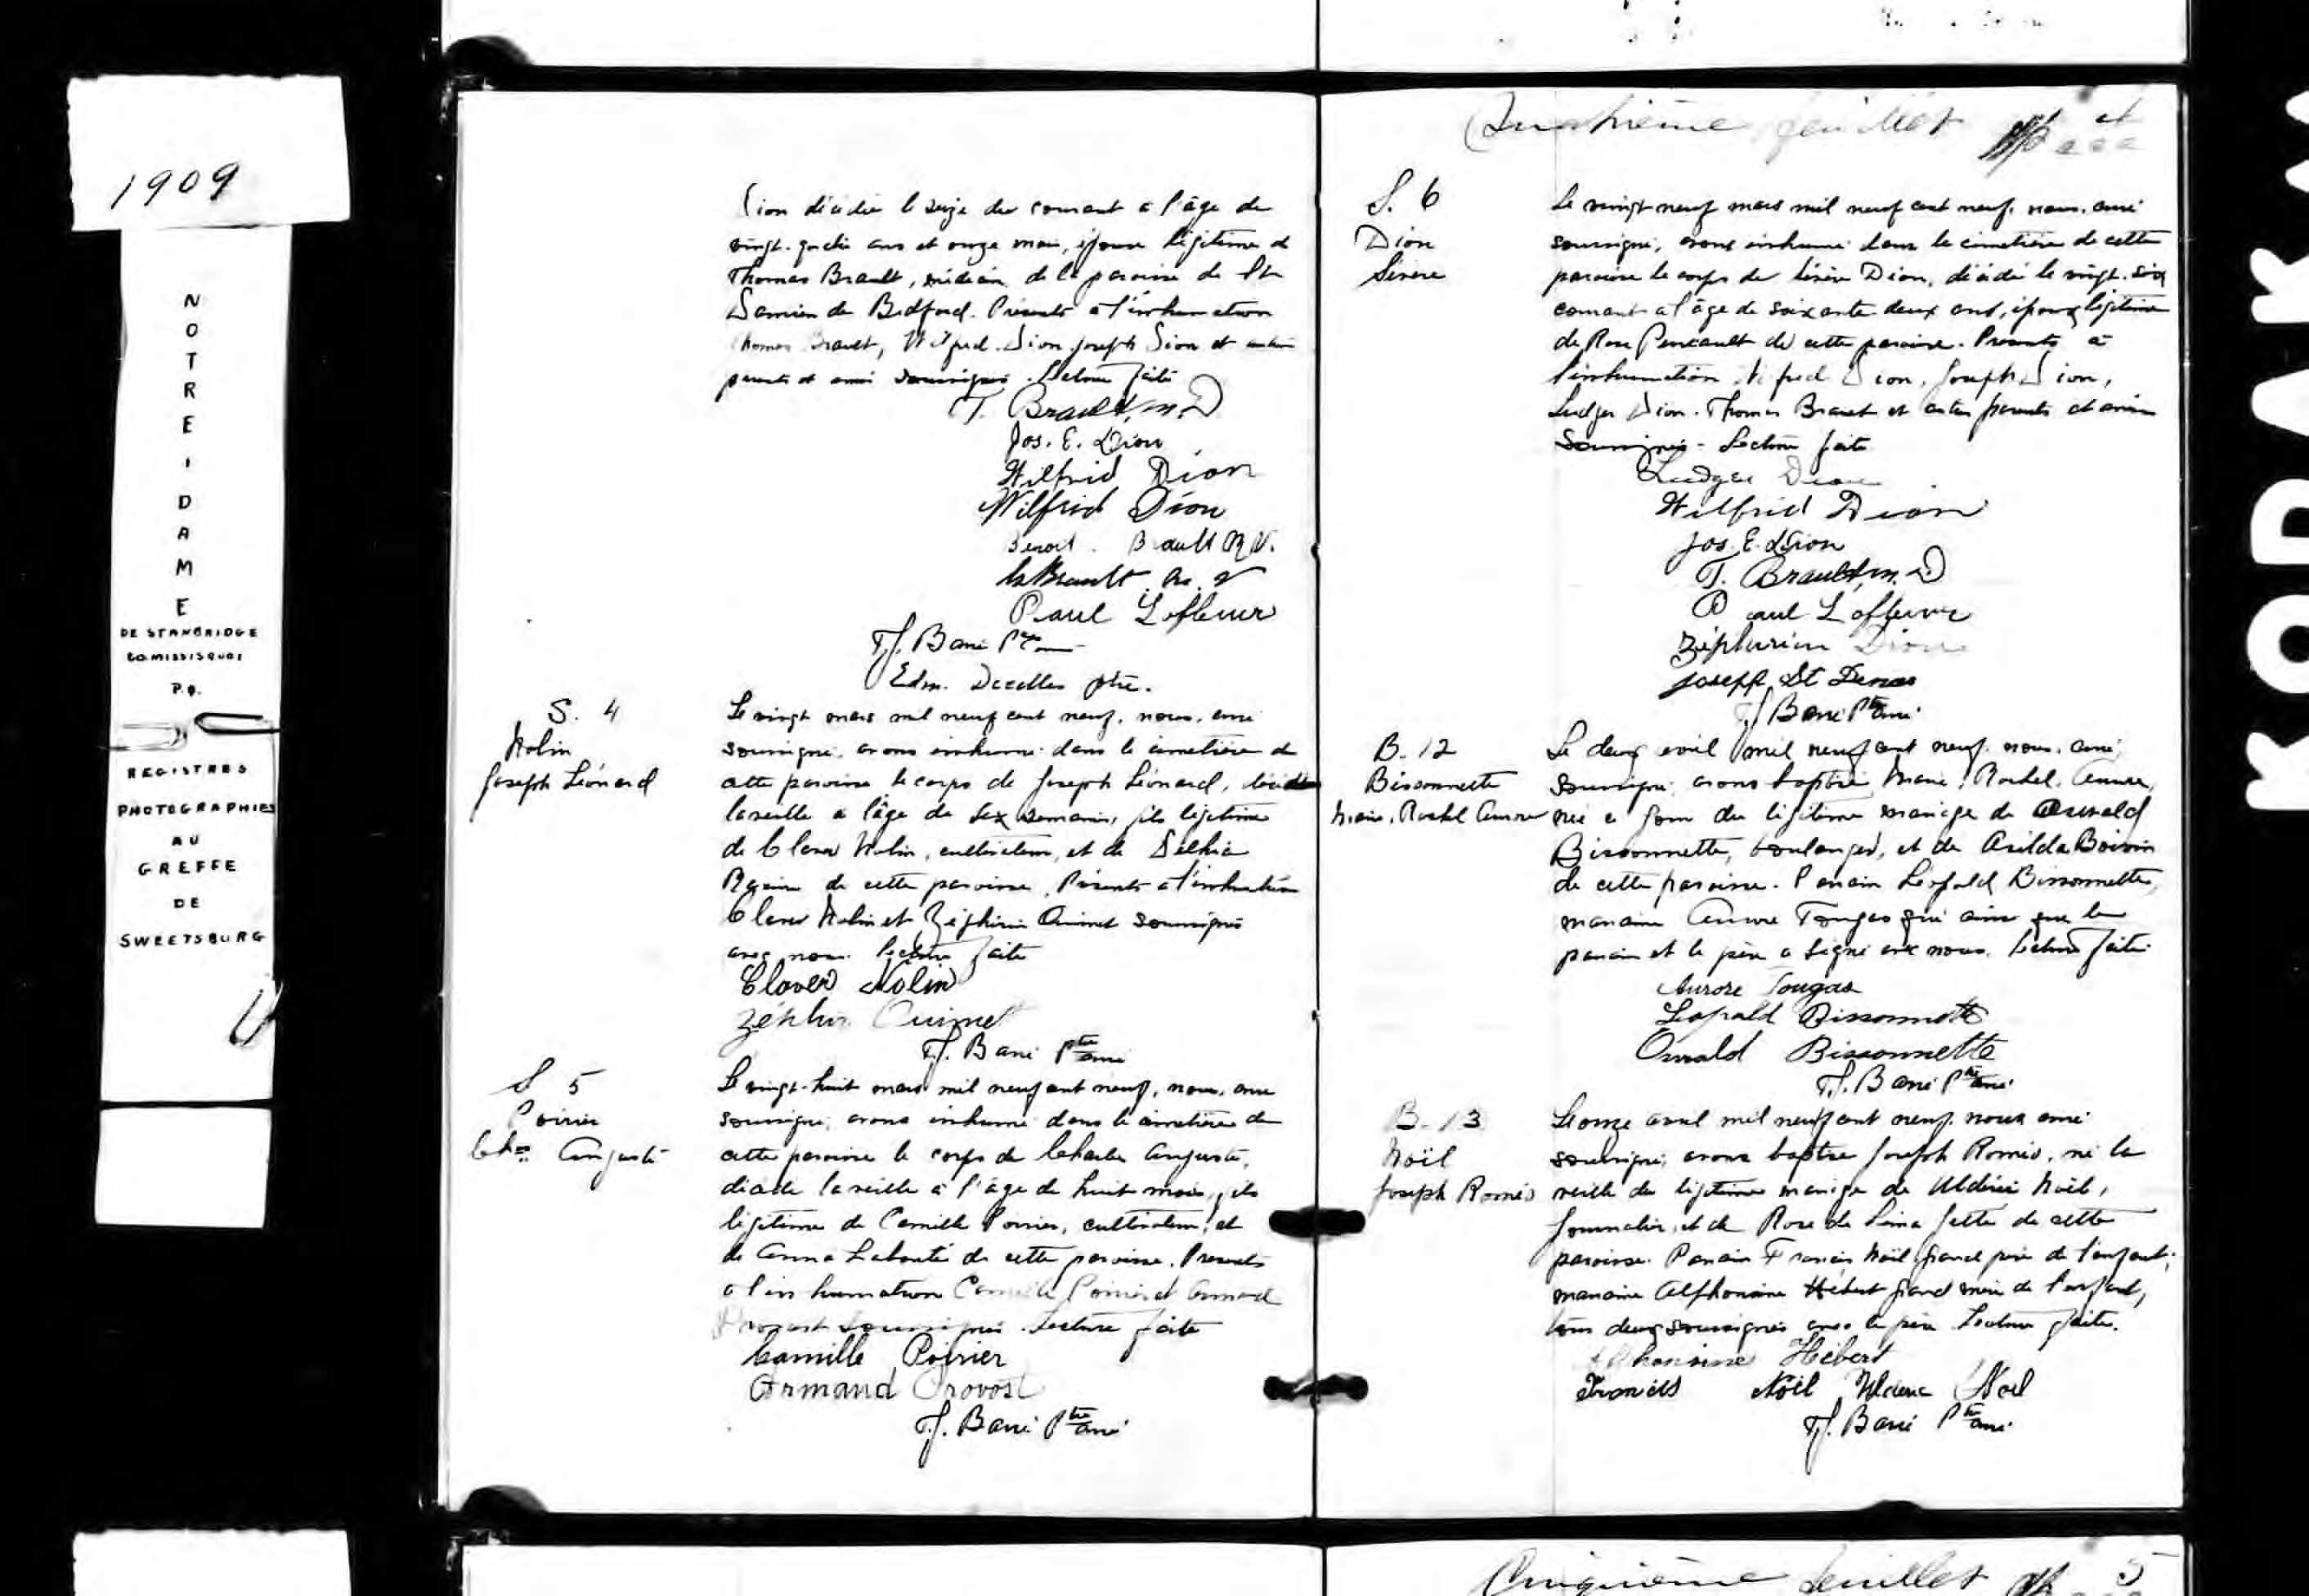 1909
NOTRE-DAME
DE STANBRIDGE
CO. MISSISQUOI
P.Q.
REGISTRES
PHOTOGRAPHIES
AU
GREFFE
DE
SWEETSBURG
Dion décédée le seize du courant à l'âge de
vingt-quatre ans et onze mois, épouse légitime de
Thomas Brault, médecin de la paroisse de St
Damien de Bedford. Présents à l'inhumation
Thomas Brault, Wilfrid Dion Joseph Dion et autres
parents et amis soussignés. Lecture faite
T. Brault, M.D
Jos. E. Dion
Wilfrid Dion
Wilfrid Dion
Benoit Brault N.
Brault
Paul Lafleur
T.J. Barré Ptre
Edm. Decelles ptre.
S. 4
Nolin
Joseph Léonard
Le vingt mars mil neuf cent neuf, nous, curé
soussigné, avons inhumé dans le cimetière de
cette paroisse le corps de Joseph Léonard, décédé
la veille à l'âge de six semaines, fils légitime
de Clover Nolin, cultivateur, et de Delhia
de cette paroisse. Présents à l'inhumation
Clover Nolin et Zéphirin Ouimet soussignés
avec nous. Lecture faite
Clover Nolin
Zéphir Ouimet
T.J. Barré Ptre curé
S 5
Poirier
Chs Auguste
Le vingt-huit mars mil neuf cent neuf, nous, curé
soussigné, avons inhumé dans le cimetière de
cette paroisse le corps de Charles Auguste,
décédé la veille à l'âge de huit mois, fils
légitime de Camille Poirier, cultivateur, et
de Anna Labonté de cette paroisse. Présents
à l'inhumation Camille Poirier et Armand
Provost soussignés. Lecture faite
Camille Poirier
Armand Provost
T.J. Barré Ptre curé
Quatrième feuillet
S. 6
Dion
Sévère
Le vingt neuf mars mil neuf cent neuf, nous, curé
soussigné, avons inhumé dans le cimetière de cette
paroisse le corps de Sévère Dion, décédé le vingt-six
courant à l'âge de soixante deux ans, époux légitime
de Rose de cette paroisse. Présents à
l'inhumation Wilfrid Dion, Joseph Dion,
Ludger Dion, Thomas Brault et autres parents et amis
soussignés - Lecture faite
Ludger Dion
Wilfrid Dion
Jos. E. Dion
T. Brault, M.D
Paul Lafleur
Zéphirin Dion
Joseph St Denis
T.J. Barré Ptre curé
B. 12
Bissonnette
Marie, Rachel Aurore
Le deux avril mil neuf cent neuf, nous, curé,
soussigné, avons baptisé Marie, Rachel, Aurore,
née ce jour du légitime mariage de Oswald
Bissonnette, boulanger, et de Azilda Boivin
de cette paroisse. Parrain Léopold Bissonnette,
marraine Aurore Tougas qui ainsi que le
parrain et le père a signé avec nous. Lecture faite
Aurore Tougas
Léopald Bissonnette
Oswald Bissonnette
T.J. Barré Ptre curé
B. 13
Noël
Joseph Roméo
Le onze avril mil neuf cent neuf, nous curé
soussigné, avons baptisé Joseph Roméo, né la
veille du légitime mariage de Uldéric Noël,
journalier, et de Rose de Lima Jetté de cette
paroisse. Parrain Francis Noël grand père de l'enfant;
marraine Alphonsine Hébert grand mère de l'enfant,
tous deux soussignés avec le père. Lecture faite.
Alphonsine Hébert
Francis Noël Uldéric Noël
T.J. Barré Ptre curé
Cinquième feuillet 5